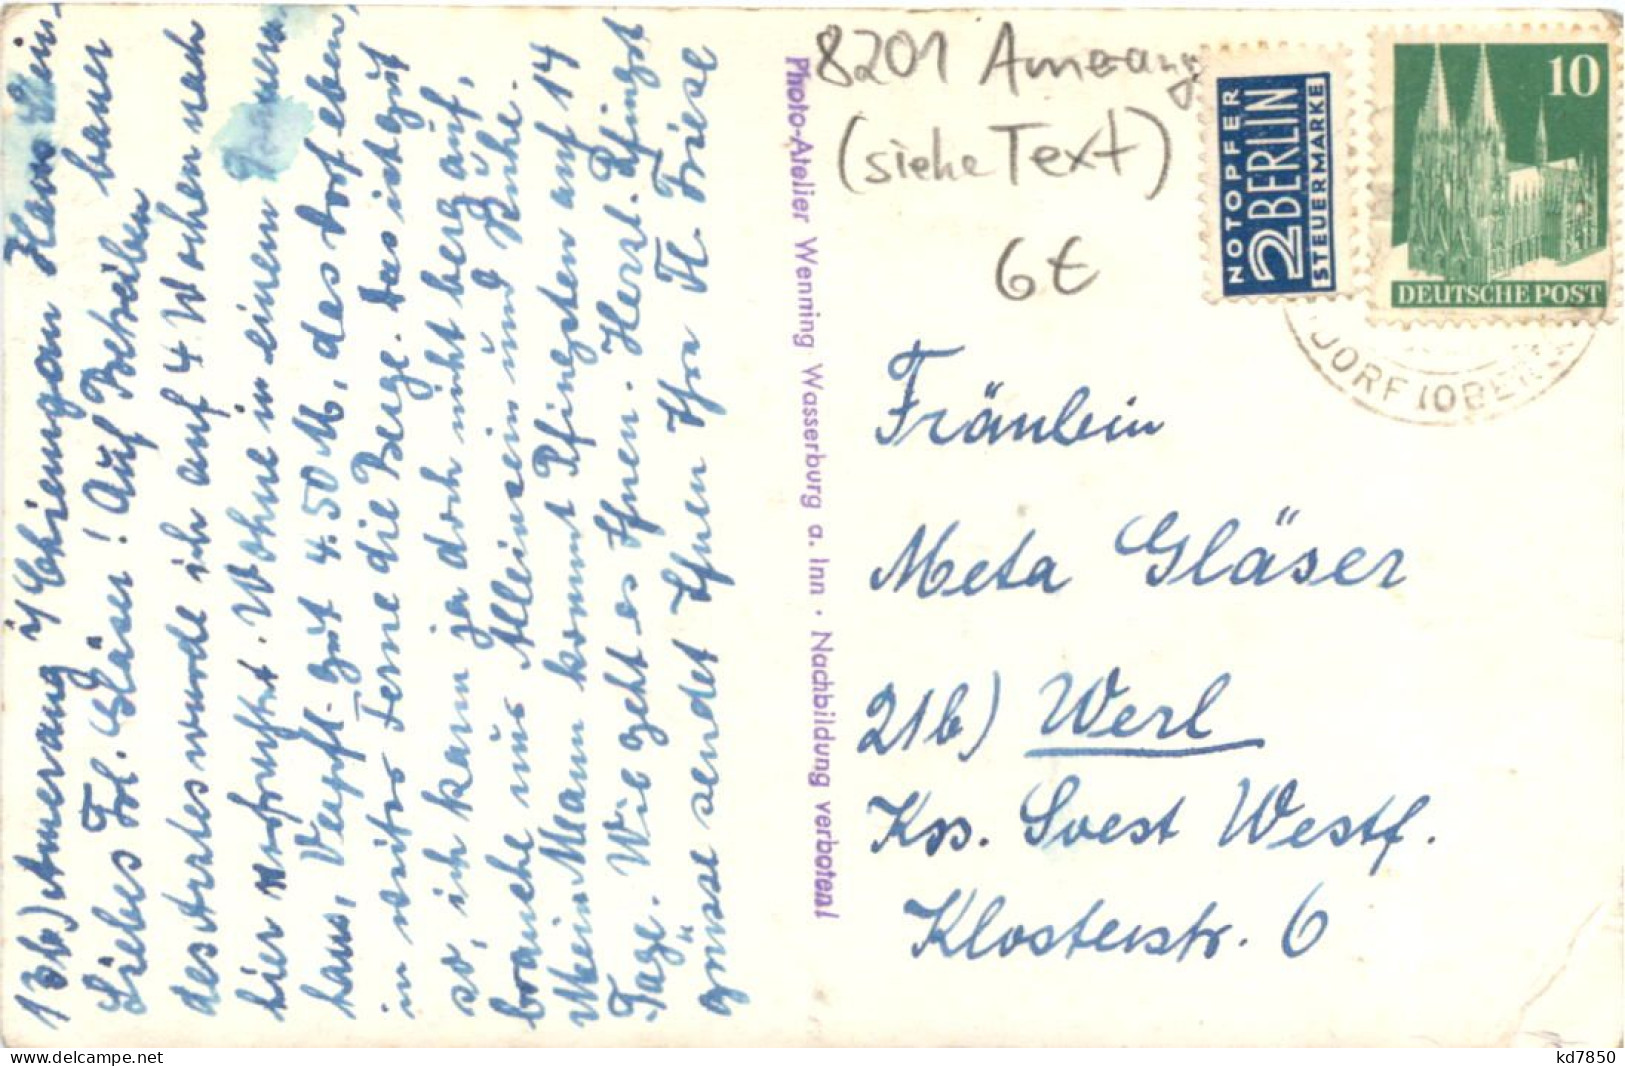 13b) Amerang i/Chiemgau Haus Lein-
bauer
Liebes Frl. Gläser! Auf Betreiben
des Arztes wurde ich auf 4 Wochen nach
hier verfrachtet. Wohne in einem
haus, Verpfl. gut 4.50 M, das Dorf eben,
in weiter Ferne die Berge. Das ist gut
so, ich kann ja doch nicht berg auf,
brauche nur Alleinsein und Ruhe.
Mein Mann kommt Pfingsten auf 14
Tage. Wie geht es Ihnen. Herzl. Pfingst
grüsse sendet Ihnen Ihre H. Friese
Photo-Atelier Wenning Wasserburg a. Inn · Nachbildung verboten!
8201 Amerang
(siehe Text)
6€
NOTOPFER
2 BERLIN
STEUERMARKE
10
DEUTSCHE POST
DORF (OBER
Fräulein
Meta Gläser
21b) Werl
Krs. Soest Westf.
Klosterstr. 6
delcampe.net
kd7850